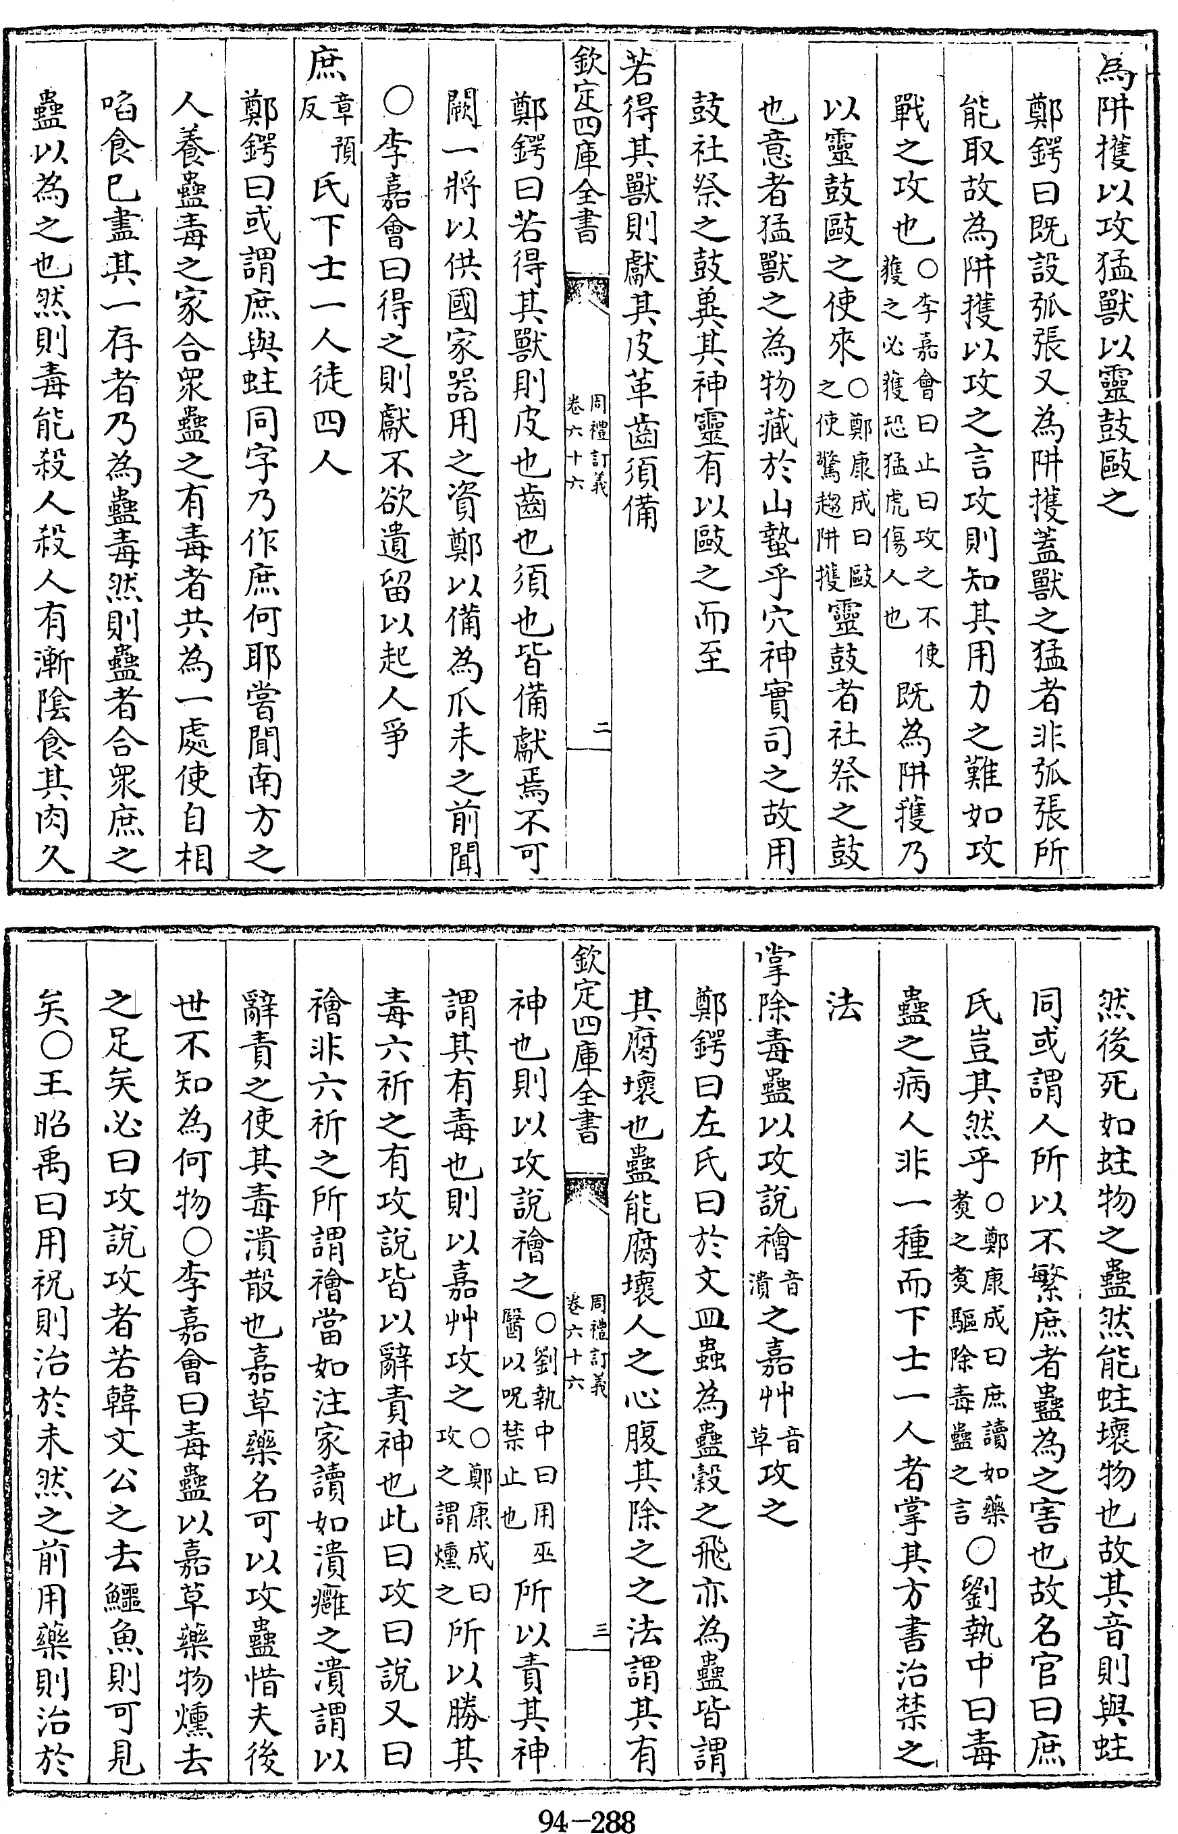 為阱擭以攻猛獸以靈鼓敺之
鄭鍔曰既設弧張又為阱擭蓋獸之猛者非弧張所
能取故為阱擭以攻之言攻則知其用力之難如攻
戰之攻也○李嘉會曰止曰攻之不使獲之必獲恐猛虎傷人也既為阱獲乃
以靈鼓敺之使來○鄭康成曰敺之使驚趨阱擭靈鼓者社祭之鼓
也意者猛獸之為物藏於山蟄乎穴神實司之故用
鼓社祭之鼓兾其神靈有以敺之而至
若得其獸則獻其皮革齒須備
欽定四庫全書 周禮訂義卷六十六 二
鄭鍔曰若得其獸則皮也齒也須也皆備獻焉不可
闕一將以供國家器用之資鄭以備為爪未之前聞
○李嘉會曰得之則獻不欲遺留以起人爭
庶章預反氏下士一人徒四人
鄭鍔曰或謂庶與蛀同字乃作庶何耶嘗聞南方之
人養蠱毒之家合衆蠱之有毒者共為一處使自相
啗食已盡其一存者乃為蠱毒然則蠱者合衆庶之
蠱以為之也然則毒能殺人殺人有漸陰食其肉久
然後死如蛀物之蠱然能蛀壞物也故其音則與蛀
同或謂人所以不繁庶者蠱為之害也故名官曰庶
氏豈其然乎○鄭康成曰庶讀如藥煑之煑驅除毒蠱之言○劉執中曰毒
蠱之病人非一種而下士一人者掌其方書治禁之
法
掌除毒蠱以攻說禬音潰之嘉艸音草攻之
鄭鍔曰左氏曰於文皿蟲為蠱穀之飛亦為蠱皆謂
其腐壞也蠱能腐壞人之心腹其除之之法謂其有
欽定四庫全書 周禮訂義卷六十六 三
神也則以攻說禬之○劉執中曰用巫醫以呪禁止也所以責其神
謂其有毒也則以嘉艸攻之○鄭康成曰攻之謂燻之所以勝其
毒六祈之有攻說皆以辭責神也此曰攻曰說又曰
禬非六祈之所謂禬當如注家讀如潰癰之潰謂以
辭責之使其毒潰散也嘉草藥名可以攻蠱惜夫後
世不知為何物○李嘉會曰毒蠱以嘉草藥物燻去
之足矣必曰攻說攻者若韓文公之去鱷魚則可見
矣○王昭禹曰用祝則治於未然之前用藥則治於
94-288